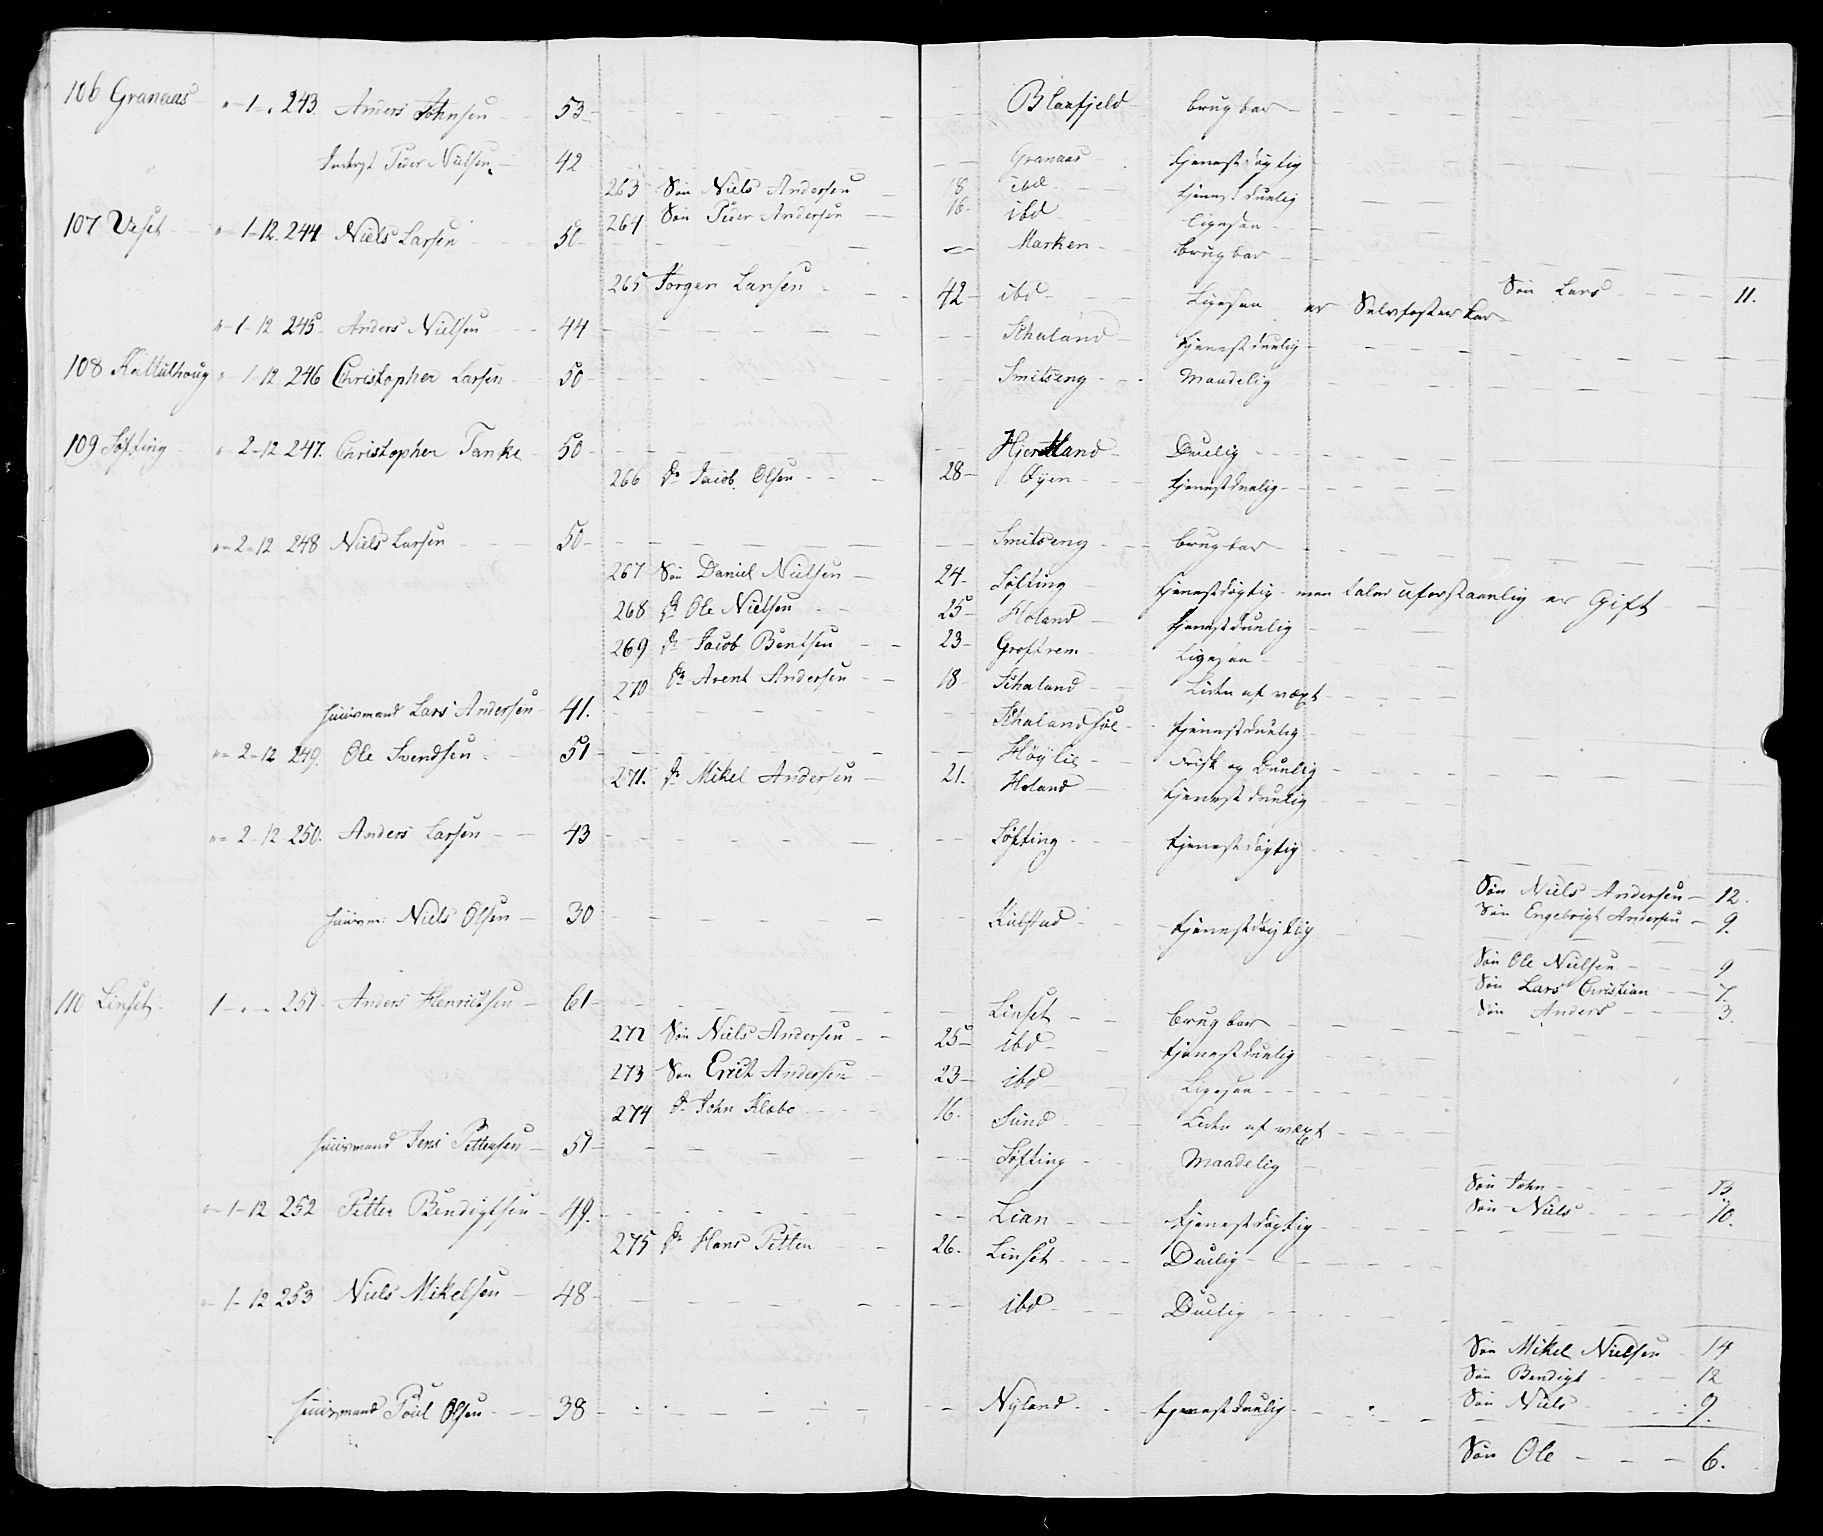 106 Granaas - " - 1 - " 243. Anders Johnsen - 53 - Blaafjeld - brugbar -
Inderst Peder Nielsen - 42 - Granaas - tjenestdygtig
263 Søn Niels Andersen - 18 ibd - tjenestduelig
264 Søn Peder Andersen - 16 - ibd - Ligesaa -
107 Veset - " - 1 - 12. 244 Niels Larsen - 50 - Marken - brugbar -
265 Jörgen Larsen - 42 - ibd - Ligesaa er Selvfosterkar
Søn Lars - 11.
" - 1 - 12 245 Anders Nielsen - 44 - Schaland - tjenestduelig -
108 Kattulhoug " - 1 - 12 246 Christopher Larsen - 50 - Smitseng - Maadelig
109 Søfting - " - 2 - 12 247. Christopher Tanke - 50 - Hjertland - Duelig -
266 Dr Jacob Olsen - 28 - Öyen - tjenestduelig -
" - 2 - 12 248 Niels Larsen - 50 - Smitseng - brugbar -
267 Søn Daniel Nielsen - 24 - Søfting tjenestdygtig - men taler uforstaaelig er Gift
268 Dr Ole Nielsen - 25 - Holand - tjenestduelig
269 Dr Jacob Bentsen - 23 - Groftrem - Ligesaa -
270 Dr Arent Andersen - 18 - Schaland - Liden af væxt
huusmand Lars Andersen - 41. - Schalandsöe - tjenestduelig
" - 2 - 12 249. Ole Svendsen - 51 - Höylie - Frisk og Duelig
271. Dr Mikel Andersen - 21. Holand - tjenestduelig
" - 2 - 12 250. Anders Larsen - 43 - Søfting - tjenestdygtig
Søn Niels Andersen - 12.
Søn Engebrigt Andersen - 9.
huusm: Niels Olsen - 30 - Kulstad - tjenestdygtig
Søn Ole Nielsen - 9
Søn Lars Christian - 7.
Søn Anders - 3.
110 Linset - 1 - " - " 251 Anders Henrichsen - 61 - Linset - brugbar -
272 Søn Niels Andersen - 25 - ibd - tjenestduelig
273 Søn Erich Andersen 23 - ibd - Ligesaa -
274 Dr John Klæbo - 16. Sund - Liden af væxt -
huusmand Jens Pettersen - 51 - Søfting - Maadelig
Søn John - 13.
Søn Niels - 10.
" - 1 - 12 252 Petter Bendigtsen - 49. - Lian - tjenestdygtig
275 Dr Hans Petter - 26. Linset - Duelig -
" - 1 - 12 253 Niels Mikelsen - 48 - ibd - Duelig
Søn Mikel Nielsen 14
Søn Bendigt - 12
Søn Niels - 9.
huusmand Poul Olsen - 38 - Nyland - tjenestduelig -
Søn Ole - 6.